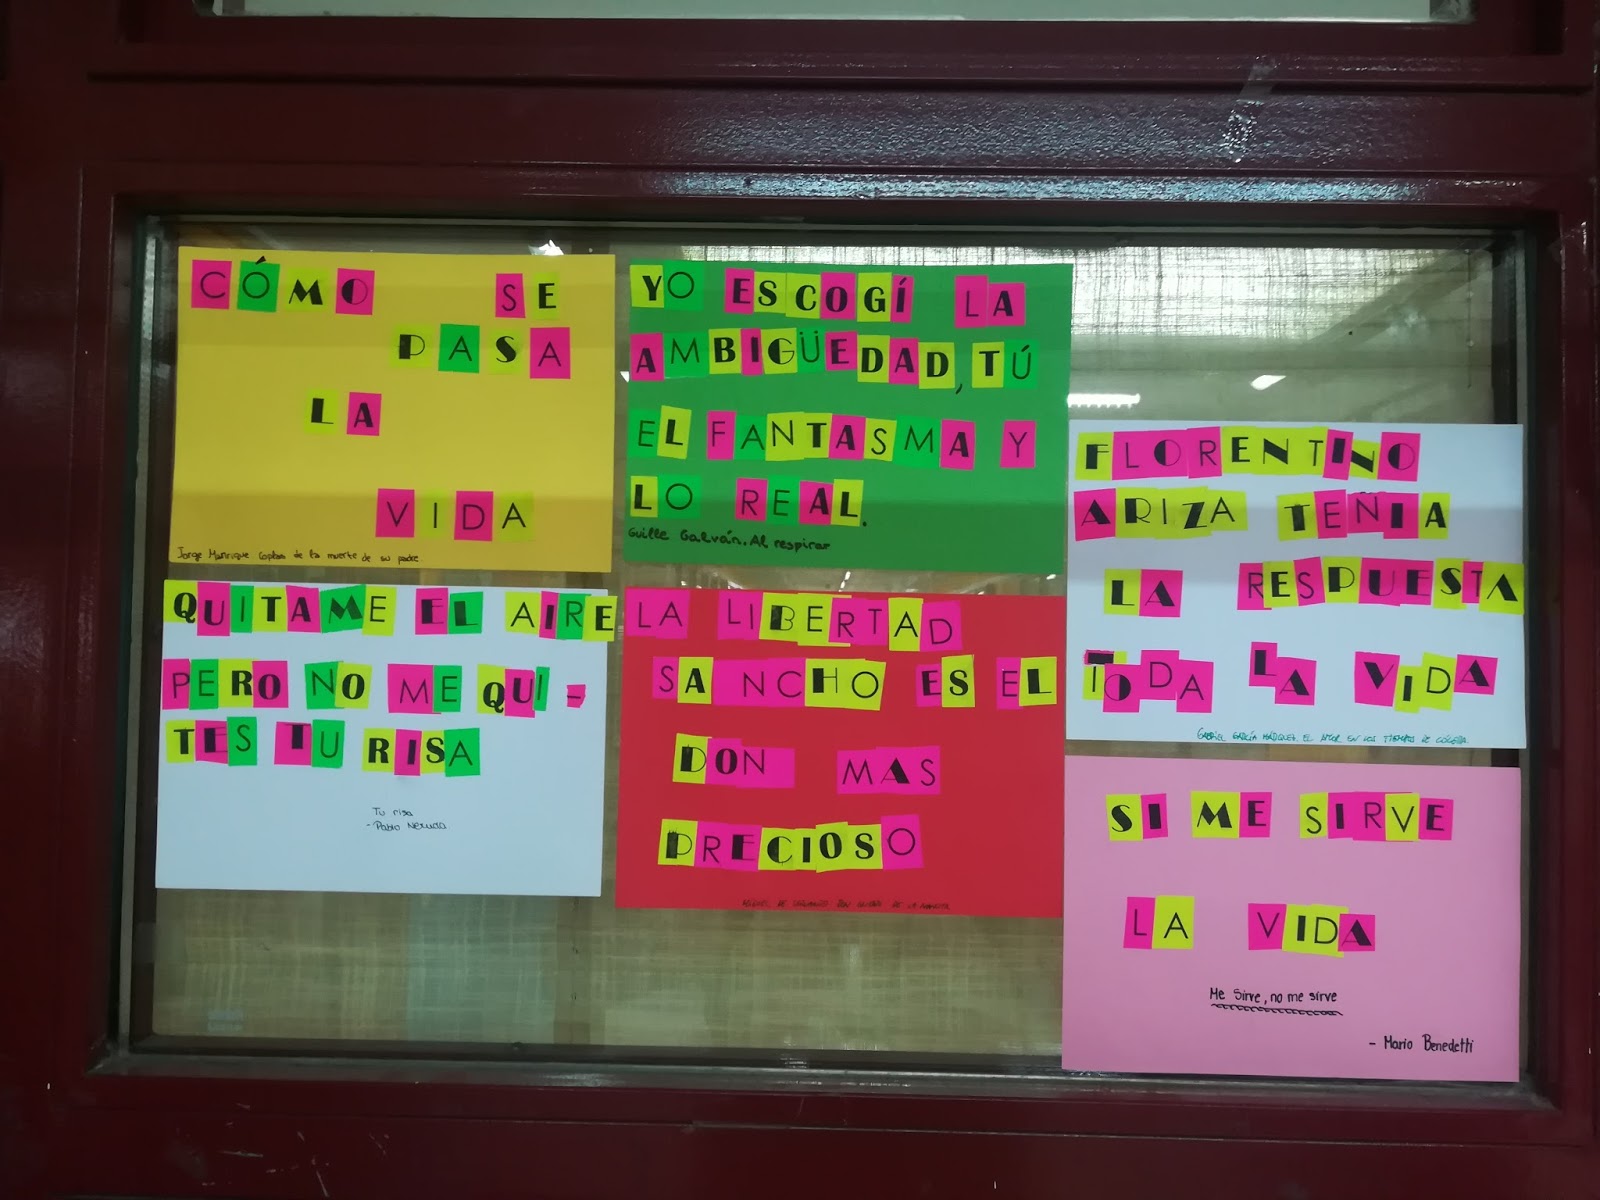 CÓMO SE
PASA
LA
VIDA
Jorge Manrique Coplas de la muerte de su padre.
YO ESCOGÍ LA
AMBIGÜEDAD, TÚ
EL FANTASMA Y
LO REAL.
Guille Galván. Al respirar
FLORENTINO
ARIZA TENIA
LA RESPUESTA
TODA LA VIDA
GABRIEL GARCÍA MÁRQUEZ. EL AMOR EN LOS TIEMPOS DE CÓLERA.
QUITAME EL AIRE
PERO NO ME QUI-
TES TU RISA
Tu risa
- Pablo Neruda
LA LIBERTAD
SANCHO ES EL
DON MAS
PRECIOSO
MIGUEL DE CERVANTES DON QUIJOTE DE LA MANCHA
SI ME SIRVE
LA VIDA
Me sirve, no me sirve
- Mario Benedetti